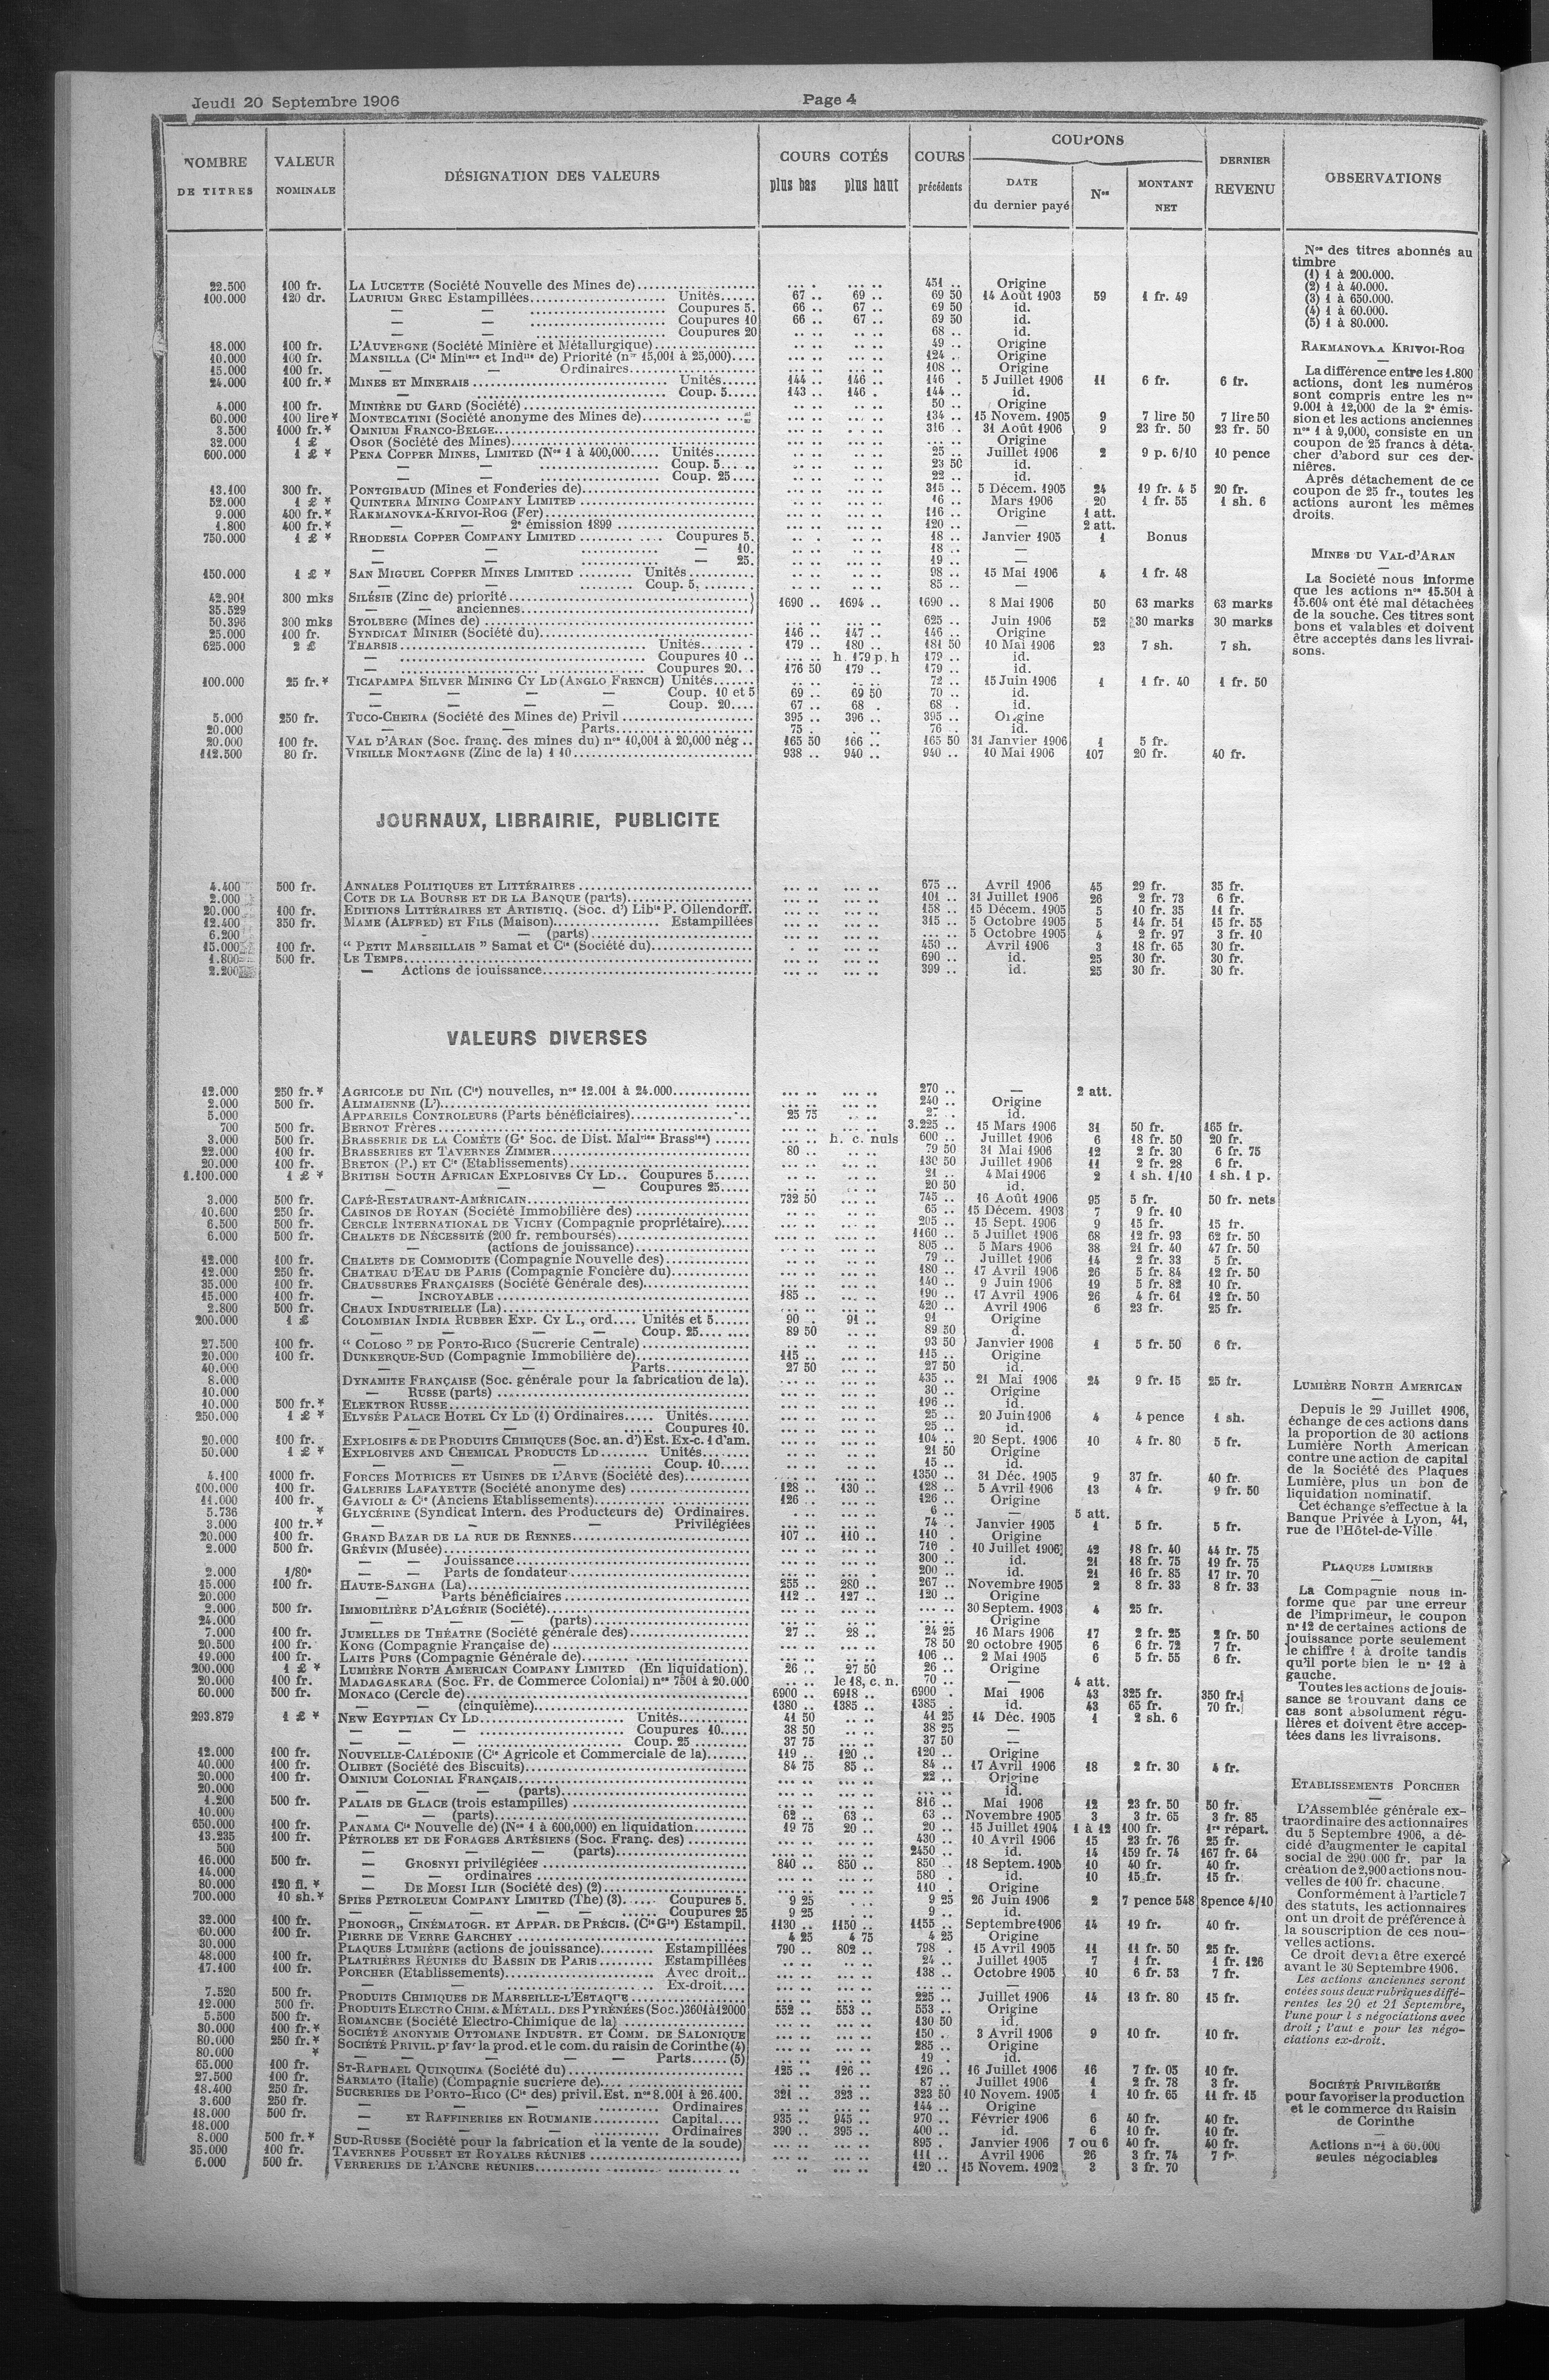 Jeudi 20 Septembre 1906
Page 4
NOMBRE DE TITRES | VALEUR NOMINALE | DÉSIGNATION DES VALEURS | COURS COTÉS plus bas plus haut | COURS précédents | COUPONS DATE du dernier payé | Nos | MONTANT NET | DERNIER REVENU | OBSERVATIONS
22.500 100 fr. LA LUCETTE (Société Nouvelle des Mines de) 451 .. Origine
100.000 120 dr. LAURIUM GREC Estampillées Unités 67 .. 69 .. 69 50 14 Août 1903 59 1 fr. 49
— — Coupures 5. 66 .. 67 .. 69 50 id.
— — Coupures 10 66 .. 67 .. 69 50 id.
— — Coupures 20 68 .. id.
18.000 100 fr. L'AUVERGNE (Société Minière et Métallurgique) 49 .. Origine
10.000 100 fr. MANSILLA (Cie Minière et Indlle de) Priorité (nos 15,001 à 25,000) 124 .. Origine
15.000 100 fr. — Ordinaires 108 .. Origine
24.000 100 fr.* MINES ET MINERAIS Unités 144 .. 146 .. 146 . 5 Juillet 1906 11 6 fr. 6 fr.
— Coup. 5 143 .. 146 . 144 .. id.
4.000 100 fr. MINIÈRE DU GARD (Société) 50 .. Origine
60.000 100 lire* MONTECATINI (Société anonyme des Mines de) 134 .. 15 Novem. 1905 9 7 lire 50 7 lire 50
3.500 1000 fr.* OMNIUM FRANCO-BELGE 316 . 31 Août 1906 9 23 fr. 50 23 fr. 50
32.000 1 £ OSOR (Société des Mines) Origine
600.000 1 £ * PENA COPPER MINES, LIMITED (Nos 1 à 400,000 Unités 25 .. Juillet 1906 2 9 p. 6/10 10 pence
— — Coup. 5 23 50 id.
— — Coup. 25 22 .. id.
13.100 300 fr. PONTGIBAUD (Mines et Fonderies de) 315 .. 5 Décem. 1905 24 19 fr. 4 5 20 fr.
52.000 1 £ * QUINTERA MINING COMPANY LIMITED 16 .. Mars 1906 20 1 fr. 55 1 sh. 6
9.000 400 fr.* RAKMANOVKA-KRIVOI-ROG (Fer) 116 .. Origine 1 att.
1.800 400 fr.* — — 2e émission 1899 120 .. — 2 att.
750.000 1 £ * RHODESIA COPPER COMPANY LIMITED Coupures 5. 18 .. Janvier 1905 1 Bonus
— — — 10. 18 .. —
— — — 25. 19 .. —
150.000 1 £ * SAN MIGUEL COPPER MINES LIMITED Unités 98 .. 15 Mai 1906 4 1 fr. 48
— — Coup. 5. 85 .. —
42.901 300 mks SILÉSIE (Zinc de) priorité
35.529 — — anciennes 1690 .. 1694 .. 1690 .. 8 Mai 1906 50 63 marks 63 marks
50.396 300 mks STOLBERG (Mines de) 625 .. Juin 1906 52 30 marks 30 marks
25.000 100 fr. SYNDICAT MINIER (Société du) 146 .. 147 .. 146 .. Origine
625.000 2 £ THARSIS Unités 179 .. 180 .. 181 50 10 Mai 1906 23 7 sh. 7 sh.
— Coupures 10 h. 179 p. h 179 .. id.
— Coupures 20. 176 50 179 .. 179 .. id.
100.000 25 fr.* TICAPAMPA SILVER MINING CY LD (ANGLO FRENCH) Unités 72 .. 15 Juin 1906 1 1 fr. 40 1 fr. 50
— — — Coup. 10 et 5 69 .. 69 50 70 .. id.
— — — Coup. 20 67 .. 68 . 68 . id.
5.000 250 fr. TUCO-CHEIRA (Société des Mines de) Privil 395 .. 396 .. 395 .. Origine
20.000 — — Parts 75 . 76 .. id.
20.000 100 fr. VAL D'ARAN (Soc. franç. des mines du) nos 10,001 à 20,000 nég .. 165 50 166 .. 165 50 31 Janvier 1906 1 5 fr.
112.500 80 fr. VIEILLE MONTAGNE (Zinc de la) 1 10 938 .. 940 .. 940 .. 10 Mai 1906 107 20 fr. 40 fr.
JOURNAUX, LIBRAIRIE, PUBLICITE
4.400 500 fr. ANNALES POLITIQUES ET LITTÉRAIRES 675 .. Avril 1906 45 29 fr. 35 fr.
2.000 COTE DE LA BOURSE ET DE LA BANQUE (parts) 101 .. 31 Juillet 1906 26 2 fr. 73 6 fr.
20.000 100 fr. EDITIONS LITTÉRAIRES ET ARTISTIQ. (Soc. d') Libie P. Ollendorff. 158 .. 15 Décem. 1905 5 10 fr. 35 11 fr.
12.400 350 fr. MAME (ALFRED) ET FILS (Maison) Estampillées 315 .. 5 Octobre 1905 5 14 fr. 51 15 fr. 55
6.200 - — (parts) 5 Octobre 1905 4 2 fr. 97 3 fr. 10
15.000 100 fr. " PETIT MARSEILLAIS " Samat et Cie (Société du) 450 .. Avril 1906 3 18 fr. 65 30 fr.
1.800 500 fr. LE TEMPS 690 .. id. 25 30 fr. 30 fr.
2.200 — Actions de jouissance 399 .. id. 25 30 fr. 30 fr.
VALEURS DIVERSES
12.000 250 fr.* AGRICOLE DU NIL (Cie) nouvelles, nos 12.001 à 24.000 270 .. — 2 att.
2.000 500 fr. ALIMAIENNE (L') 240 .. Origine
5.000 APPAREILS CONTROLEURS (Parts bénéficiaires) 25 75 27 . id.
700 500 fr. BERNOT Frères 3.225 .. 15 Mars 1906 31 50 fr. 165 fr.
3.000 500 fr. BRASSERIE DE LA COMÈTE (Ge Soc. de Dist. Malries Brassies) h. c. nuls 600 .. Juillet 1906 6 18 fr. 50 20 fr.
22.000 100 fr. BRASSERIES ET TAVERNES ZIMMER 80 .. 79 50 31 Mai 1906 12 2 fr. 30 6 fr. 75
20.000 100 fr. BRETON (P.) ET Cie (Etablissements) 130 50 Juillet 1906 11 2 fr. 28 6 fr.
1.100.000 1 £ * BRITISH SOUTH AFRICAN EXPLOSIVES CY LD.. Coupures 5 21 .. 4 Mai 1906 2 1 sh. 1/10 1 sh. 1 p.
— — Coupures 25 20 50 id.
3.000 500 fr. CAFÉ-RESTAURANT-AMÉRICAIN 732 50 745 .. 16 Août 1906 95 5 fr. 50 fr. nets
10.600 250 fr. CASINOS DE ROYAN (Société Immobilière des) 65 .. 15 Décem. 1903 7 9 fr. 10
6.500 500 fr. CERCLE INTERNATIONAL DE VICHY (Compagnie propriétaire) 205 .. 15 Sept. 1906 9 15 fr. 15 fr.
6.000 500 fr. CHALETS DE NÉCESSITÉ (200 fr. remboursés) 1160 .. 5 Juillet 1906 68 12 fr. 93 62 fr. 50
— (actions de jouissance) 805 .. 5 Mars 1906 38 21 fr. 40 47 fr. 50
12.000 100 fr. CHALETS DE COMMODITE (Compagnie Nouvelle des) 79 .. Juillet 1906 14 2 fr. 33 5 fr.
12.000 250 fr. CHATEAU D'EAU DE PARIS (Compagnie Foncière du) 180 .. 17 Avril 1906 26 5 fr. 84 12 fr. 50
35.000 100 fr. CHAUSSURES FRANÇAISES (Société Générale des) 140 .. 9 Juin 1906 19 5 fr. 82 10 fr.
15.000 100 fr. — INCROYABLE 185 .. 190 .. 17 Avril 1906 26 4 fr. 61 12 fr. 50
2.800 500 fr. CHAUX INDUSTRIELLE (La) 420 .. Avril 1906 6 23 fr. 25 fr.
200.000 1 £ COLOMBIAN INDIA RUBBER EXP. CY L., ord.... Unités et 5 90 . 91 .. 91 Origine
— — — — Coup. 25 89 50 89 50 d.
27.500 100 fr. " COLOSO " DE PORTO-RICO (Sucrerie Centrale) 93 50 Janvier 1906 1 5 fr. 50 6 fr.
20.000 100 fr. DUNKERQUE-SUD (Compagnie Immobilière de) 115 .. 115 .. Origine
40.000 — — Parts 27 50 27 50 id.
8.000 DYNAMITE FRANÇAISE (Soc. générale pour la fabrication de la). 435 .. 21 Mai 1906 24 9 fr. 15 25 fr.
10.000 — RUSSE (parts) 30 .. Origine
10.000 500 fr.* ELEKTRON RUSSE 196 .. id.
250.000 1 £ * ELYSÉE PALACE HOTEL CY LD (1) Ordinaires Unités 25 .. 20 Juin 1906 4 4 pence 1 sh.
— — Coupures 10. 25 .. id.
20.000 100 fr. EXPLOSIFS & DE PRODUITS CHIMIQUES (Soc. an. d') Est. Ex-c. 1 d'am. 104 .. 20 Sept. 1906 10 4 fr. 80 5 fr.
50.000 1 £ * EXPLOSIVES AND CHEMICAL PRODUCTS LD Unités 21 50 Origine
— — — Coup. 10 15 .. id.
4.100 1000 fr. FORCES MOTRICES ET USINES DE L'ARVE (Société des) 1350 .. 31 Déc. 1905 9 37 fr. 40 fr.
100.000 100 fr. GALERIES LAFAYETTE (Société anonyme des) 128 .. 130 .. 128 .. 5 Avril 1906 13 4 fr. 9 fr. 50
11.000 100 fr. GAVIOLI & Cie (Anciens Etablissements) 126 .. 126 .. Origine
5.736 * GLYCÉRINE (Syndicat Intern. des Producteurs de) Ordinaires. 6 .. — 5 att.
3.000 100 fr.* — — Privilégiées 74 . Janvier 1905 1 5 fr. 5 fr.
20.000 100 fr. GRAND BAZAR DE LA RUE DE RENNES 107 .. 110 .. 110 . Origine
2.000 500 fr. GRÉVIN (Musée) 710 . 10 Juillet 1906 42 18 fr. 40 44 fr. 75
— — Jouissance 300 .. id. 21 18 fr. 75 19 fr. 75
2.000 1/80e — — Parts de fondateur 200 .. id. 21 16 fr. 85 17 fr. 70
15.000 100 fr. HAUTE-SANGHA (La) 255 .. 280 .. 267 .. Novembre 1905 2 8 fr. 33 8 fr. 33
20.000 — Parts bénéficiaires 112 .. 127 .. 120 .. Origine
2.000 500 fr. IMMOBILIÈRE D'ALGÉRIE (Société) 30 Septem. 1903 4 25 fr.
24.000 — — — (parts) Origine
7.000 100 fr. JUMELLES DE THÉATRE (Société générale des) 27 .. 28 .. 24 25 16 Mars 1906 17 2 fr. 25 2 fr. 50
20.500 100 fr. KONG (Compagnie Française de) 78 50 20 octobre 1905 6 6 fr. 72 7 fr.
19.000 100 fr. LAITS PURS (Compagnie Générale de) 106 .. 2 Mai 1905 6 5 fr. 55 6 fr.
200.000 1 £ * LUMIÈRE NORTH AMERICAN COMPANY LIMITED (En liquidation). 26 .. 27 50 26 .. Origine
20.000 100 fr. MADAGASKARA (Soc. Fr. de Commerce Colonial) nos 7501 à 20.000 le 18, c. n. 70 .. — 4 att.
60.000 500 fr. MONACO (Cercle de) 6900 .. 6918 .. 6900 . Mai 1906 43 325 fr. 350 fr.
— (cinquième) 1380 .. 1385 .. 1385 . id. 43 65 fr. 70 fr.
293.879 1 £ * NEW EGYPTIAN CY LD Unités 41 50 41 25 14 Déc. 1905 1 2 sh. 6
— — — Coupures 10 38 50 38 25 —
— — — Coup. 25 37 75 37 50 —
12.000 100 fr. NOUVELLE-CALÉDONIE (Cie Agricole et Commerciale de la) 119 .. 120 .. 120 .. Origine
40.000 100 fr. OLIBET (Société des Biscuits) 84 75 85 .. 84 .. 17 Avril 1906 18 2 fr. 30 4 fr.
20.000 100 fr. OMNIUM COLONIAL FRANÇAIS 22 .. Origine
20.000 — — — (parts) id.
1.200 500 fr. PALAIS DE GLACE (trois estampilles) 816 .. Mai 1906 12 23 fr. 50 50 fr.
10.000 — — (parts) 62 .. 63 .. 63 .. Novembre 1905 3 3 fr. 65 3 fr. 85
650.000 100 fr. PANAMA Cie Nouvelle de) (Nos 1 à 600,000) en liquidation 19 75 20 .. 20 .. 15 Juillet 1904 1 à 12 100 fr. 1re répart.
13.235 100 fr. PÉTROLES ET DE FORAGES ARTÉSIENS (Soc. Franç. des) 430 .. 10 Avril 1906 15 23 fr. 76 25 fr.
500 — — (parts) 2450 .. id. 14 159 fr. 74 167 fr. 64
16.000 500 fr. — GROSNYI privilégiées 840 .. 850 .. 850 . 18 Septem. 1905 10 40 fr. 40 fr.
14.000 — — ordinaires 580 . id. 10 15 fr. 15 fr.
80.000 120 fl. * — DE MOESI ILIR (Société des) (2) 110 . Origine
700.000 10 sh.* SPIES PETROLEUM COMPANY LIMITED (The) (3) Coupures 5. 9 25 9 25 26 Juin 1906 2 7 pence 548 8pence 4/10
— — — — Coupures 25 9 25 9 .. id.
32.000 100 fr. PHONOGR., CINÉMATOGR. ET APPAR. DE PRÉCIS. (Cie Gle) Estampil. 1130 .. 1150 .. 1155 .. Septembre 1906 14 19 fr. 40 fr.
60.000 100 fr. PIERRE DE VERRE GARCHEY 4 25 4 75 4 25 Origine
30.000 PLAQUES LUMIÈRE (actions de jouissance) Estampillées 790 .. 802 .. 798 . 15 Avril 1905 11 11 fr. 50 25 fr.
48.000 100 fr. PLATRIÈRES RÉUNIES DU BASSIN DE PARIS Estampillées 24 .. Juillet 1905 7 1 fr. 1 fr. 126
17.100 100 fr. PORCHER (Etablissements) Avec droit 138 .. Octobre 1905 10 6 fr. 53 7 fr.
— — Ex-droit —
7.520 500 fr. PRODUITS CHIMIQUES DE MARSEILLE-L'ESTAQUE 225 .. Juillet 1906 14 13 fr. 80 15 fr.
12.000 500 fr. PRODUITS ELECTRO CHIM. & MÉTALL. DES PYRÉNÉES (Soc.) 3601 à 12000 552 .. 553 .. 553 .. Origine
5.500 500 fr. ROMANCHE (Société Electro-Chimique de la) 130 50 id.
30.000 100 fr.* SOCIÉTÉ ANONYME OTTOMANE INDUSTR. ET COMM. DE SALONIQUE 150 .. 3 Avril 1906 9 10 fr. 10 fr.
80.000 250 fr.* SOCIÉTÉ PRIVIL. pr favr la prod. et le com. du raisin de Corinthe (4) 285 .. Origine
80.000 * — — — — Parts (5) 19 . id.
65.000 100 fr. ST-RAPHAEL QUINQUINA (Société du) 125 .. 126 .. 126 .. 16 Juillet 1906 16 7 fr. 05 10 fr.
27.500 100 fr. SARMATO (Italie) (Compagnie sucrière de) 87 .. Juillet 1906 1 2 fr. 78 3 fr.
18.400 250 fr. SUCRERIES DE PORTO-RICO (Cie des) privil. Est. nos 8.001 à 26.400. 321 .. 323 .. 323 50 10 Novem. 1905 1 10 fr. 65 11 fr. 15
3.600 250 fr. — — — Ordinaires 144 .. Origine
18.000 500 fr. — ET RAFFINERIES EN ROUMANIE Capital 935 .. 945 .. 970 .. Février 1906 6 40 fr. 40 fr.
18.000 — — — Ordinaires 390 .. 395 .. 400 .. id. 6 10 fr. 10 fr.
8.000 500 fr.* SUD-RUSSE (Société pour la fabrication et la vente de la soude) 895 . Janvier 1906 7 ou 6 40 fr. 40 fr.
35.000 100 fr. TAVERNES POUSSET ET ROYALES RÉUNIES 111 .. Avril 1906 26 3 fr. 74 7 fr.
6.000 500 fr. VERRERIES DE L'ANCRE RÉUNIES 120 .. 15 Novem. 1902 3 3 fr. 70
Nos des titres abonnés au
timbre
(1) 1 à 200.000.
(2) 1 à 40.000.
(3) 1 à 650.000.
(4) 1 à 60.000.
(5) 1 à 80.000.
RAKMANOVKA KRIVOI-ROG
La différence entre les 1.800
actions, dont les numéros
sont compris entre les nos
9.001 à 12,000 de la 2e émis-
sion et les actions anciennes
nos 1 à 9,000, consiste en un
coupon de 25 francs à déta-
cher d'abord sur ces der-
nières.
Après détachement de ce
coupon de 25 fr., toutes les
actions auront les mêmes
droits.
MINES DU VAL-d'ARAN
La Société nous informe
que les actions nos 15.501 à
15.604 ont été mal détachées
de la souche. Ces titres sont
bons et valables et doivent
être acceptés dans les livrai-
sons.
LUMIÈRE NORTH AMERICAN
Depuis le 29 Juillet 1906,
échange de ces actions dans
la proportion de 30 actions
Lumière North American
contre une action de capital
de la Société des Plaques
Lumière, plus un bon de
liquidation nominatif.
Cet échange s'effectue à la
Banque Privée à Lyon, 41,
rue de l'Hôtel-de-Ville
PLAQUES LUMIERE
La Compagnie nous in-
forme que par une erreur
de l'imprimeur, le coupon
n° 12 de certaines actions de
jouissance porte seulement
le chiffre 1 à droite tandis
qu'il porte bien le n° 12 à
gauche.
Toutes les actions de jouis-
sance se trouvant dans ce
cas sont absolument régu-
lières et doivent être accep-
tées dans les livraisons.
ETABLISSEMENTS PORCHER
L'Assemblée générale ex-
traordinaire des actionnaires
du 5 Septembre 1906, a dé-
cidé d'augmenter le capital
social de 290.000 fr. par la
création de 2.900 actions nou-
velles de 100 fr. chacune.
Conformément à l'article 7
des statuts, les actionnaires
ont un droit de préférence à
la souscription de ces nou-
velles actions.
Ce droit devra être exercé
avant le 30 Septembre 1906.
Les actions anciennes seront
cotées sous deux rubriques diffé-
rentes les 20 et 21 Septembre,
l'une pour l s négociations avec
droit ; l'aut e pour les négo-
ciations ex-droit.
SOCIÉTÉ PRIVILÉGIÉE
pour favoriser la production
et le commerce du Raisin
de Corinthe
Actions nos 1 à 60.000
seules négociables